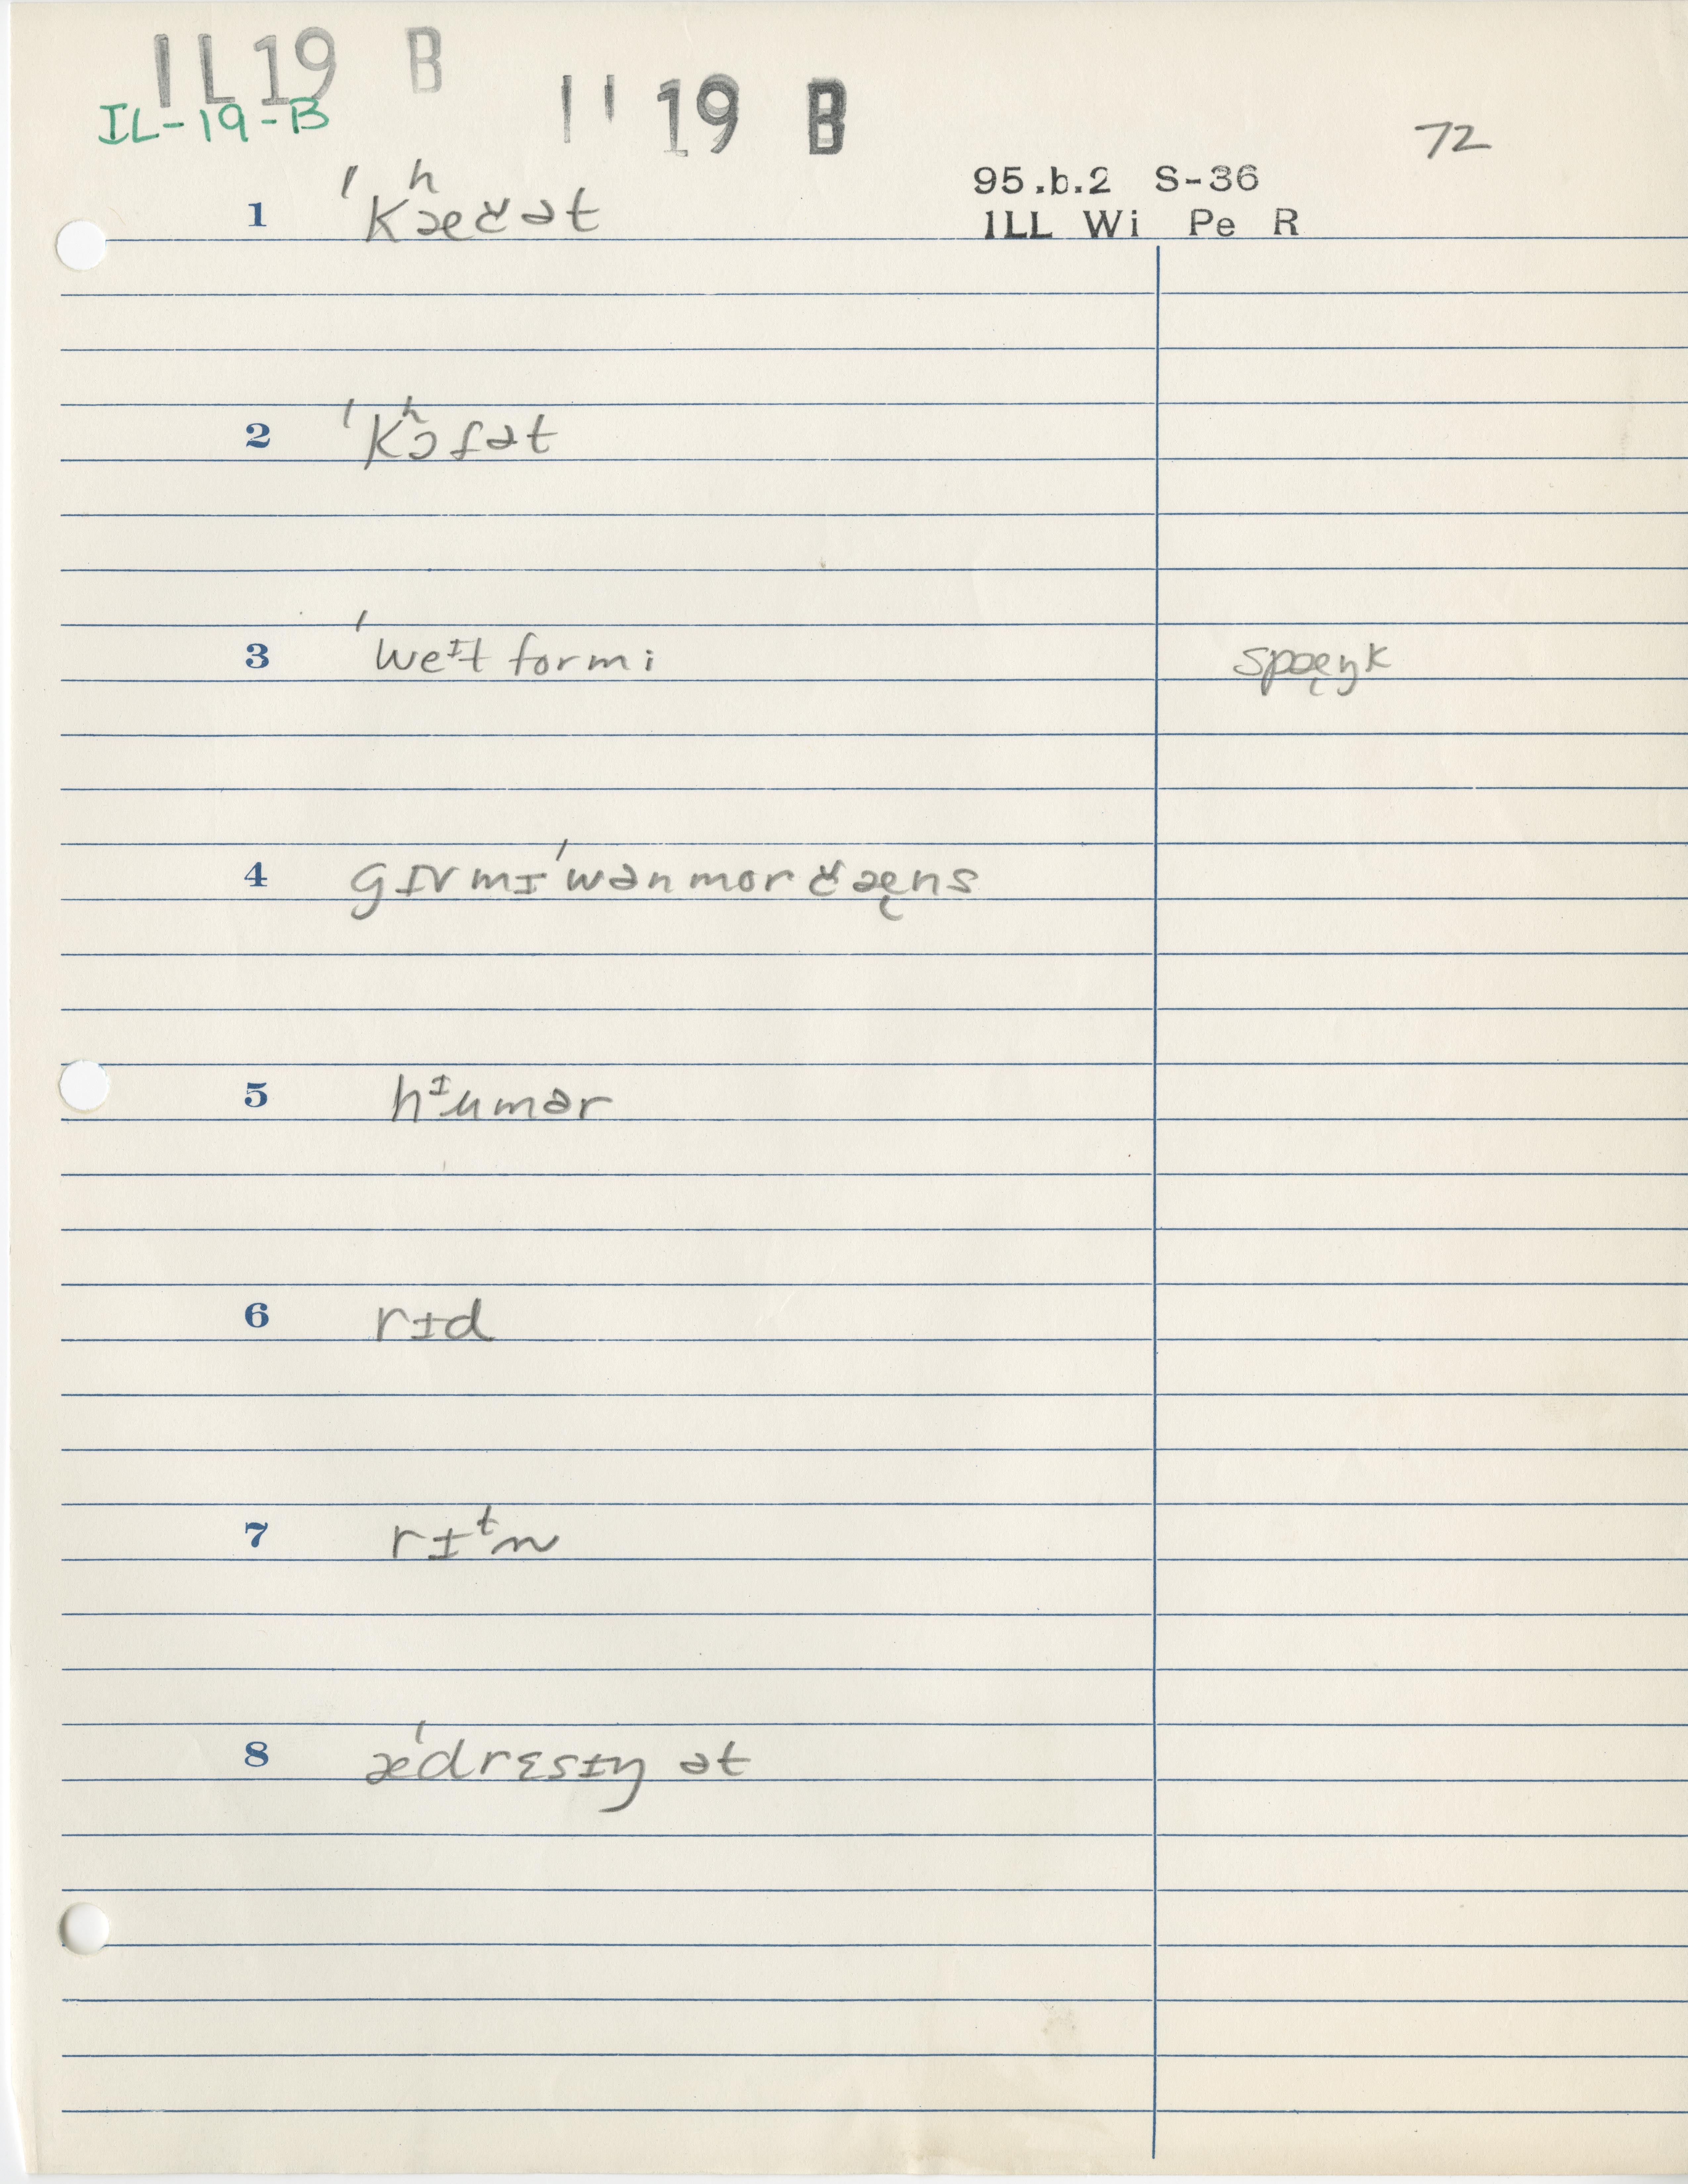 IL19 B
IL-19-B
19 B
72
95.b.2 S-36
1LL Wi Pe R
1 ˈkʰætʃət
2 ˈkʰɔfət
3 ˈweᶦt fɔrmi spæ̨ŋk
4 gɪv mɪ ˈwən mor tʃæ̨ns
5 hᶦumər
6 rɪd
7 rɪᵗn
8 æˈdrɛsɪŋ ət